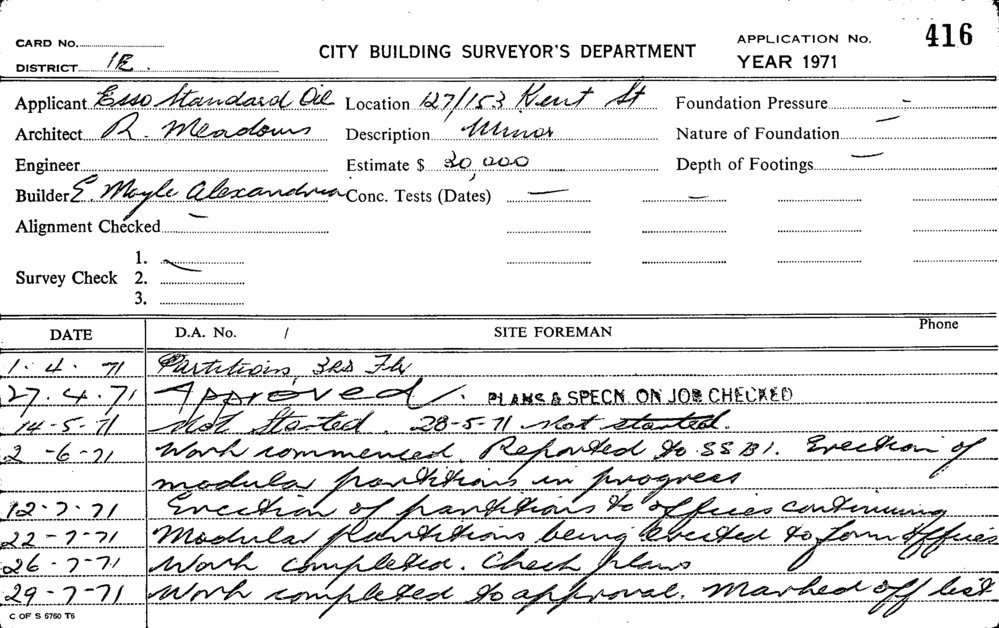 416
CARD No. CITY BUILDING SURVEYOR'S DEPARTMENT APPLICATION No.
DISTRICT 1E. YEAR 1971
Applicant Esso Standard Oil Location 127/153 Kent St Foundation Pressure -
Architect R. Meadows Description Minor Nature of Foundation -
Engineer Estimate $ 30,000 Depth of Footings -
Builder E. Moyle Alexandria Conc. Tests (Dates) - -
Alignment Checked -
1.
Survey Check 2.
3.
DATE D.A. No. / SITE FOREMAN Phone
1. 4. 71 Partitions 3rd Flr
27.4.71 Approved. PLANS & SPECN ON JOB CHECKED
14-5-71 Not Started. 28-5-71 Not started.
2-6-71 Work commenced. Reported to SSBI. Erection of
modular partitions in progress
12-7-71 Erection of partitions to offices continuing
22-7-71 Modular partitions being erected to form offices
26-7-71 Work completed. Check plans
29-7-71 Work completed to approval. Marked off list
C OF S 6760 T6